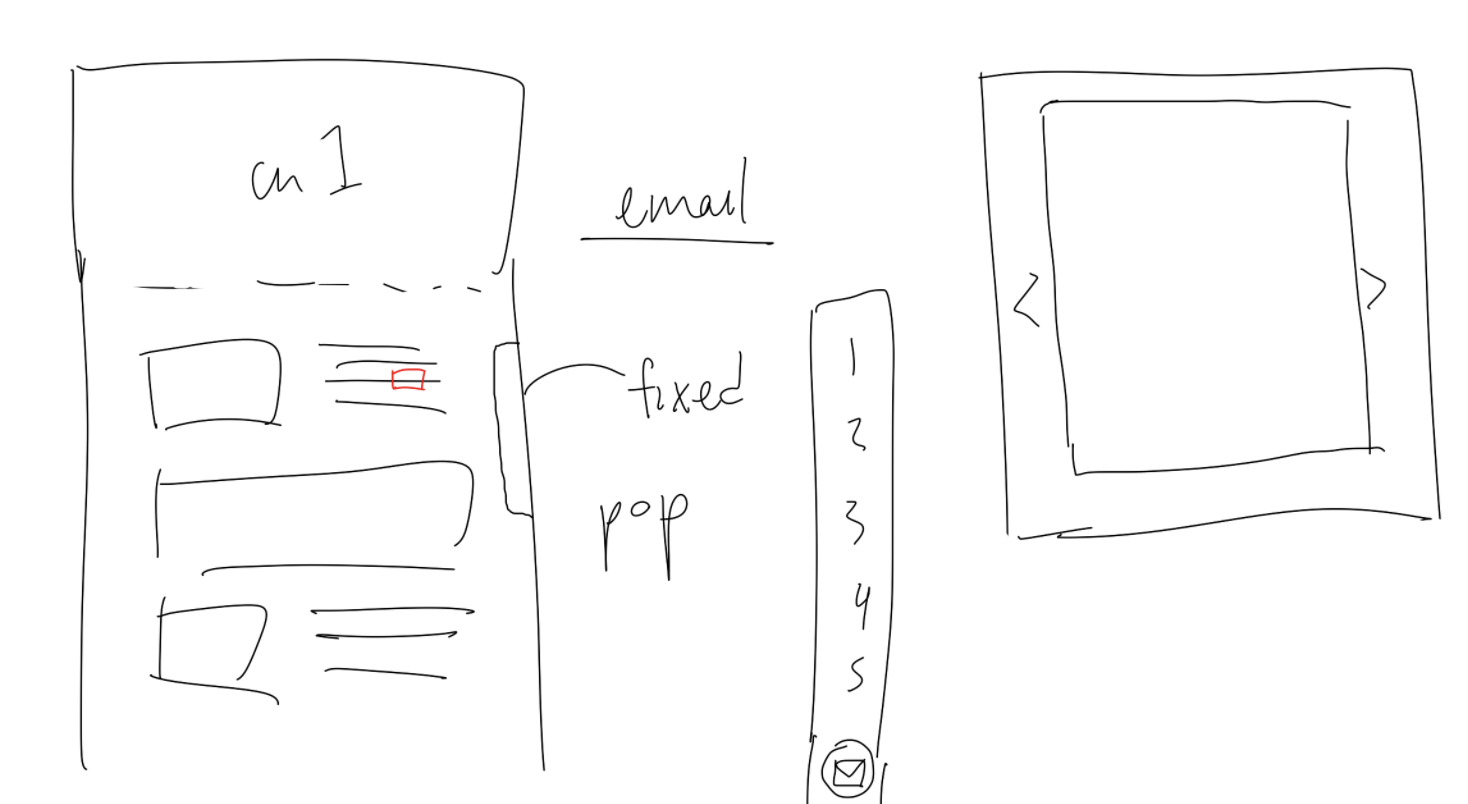 cn 1
email
fixed
pop
1
2
3
4
5
<
>